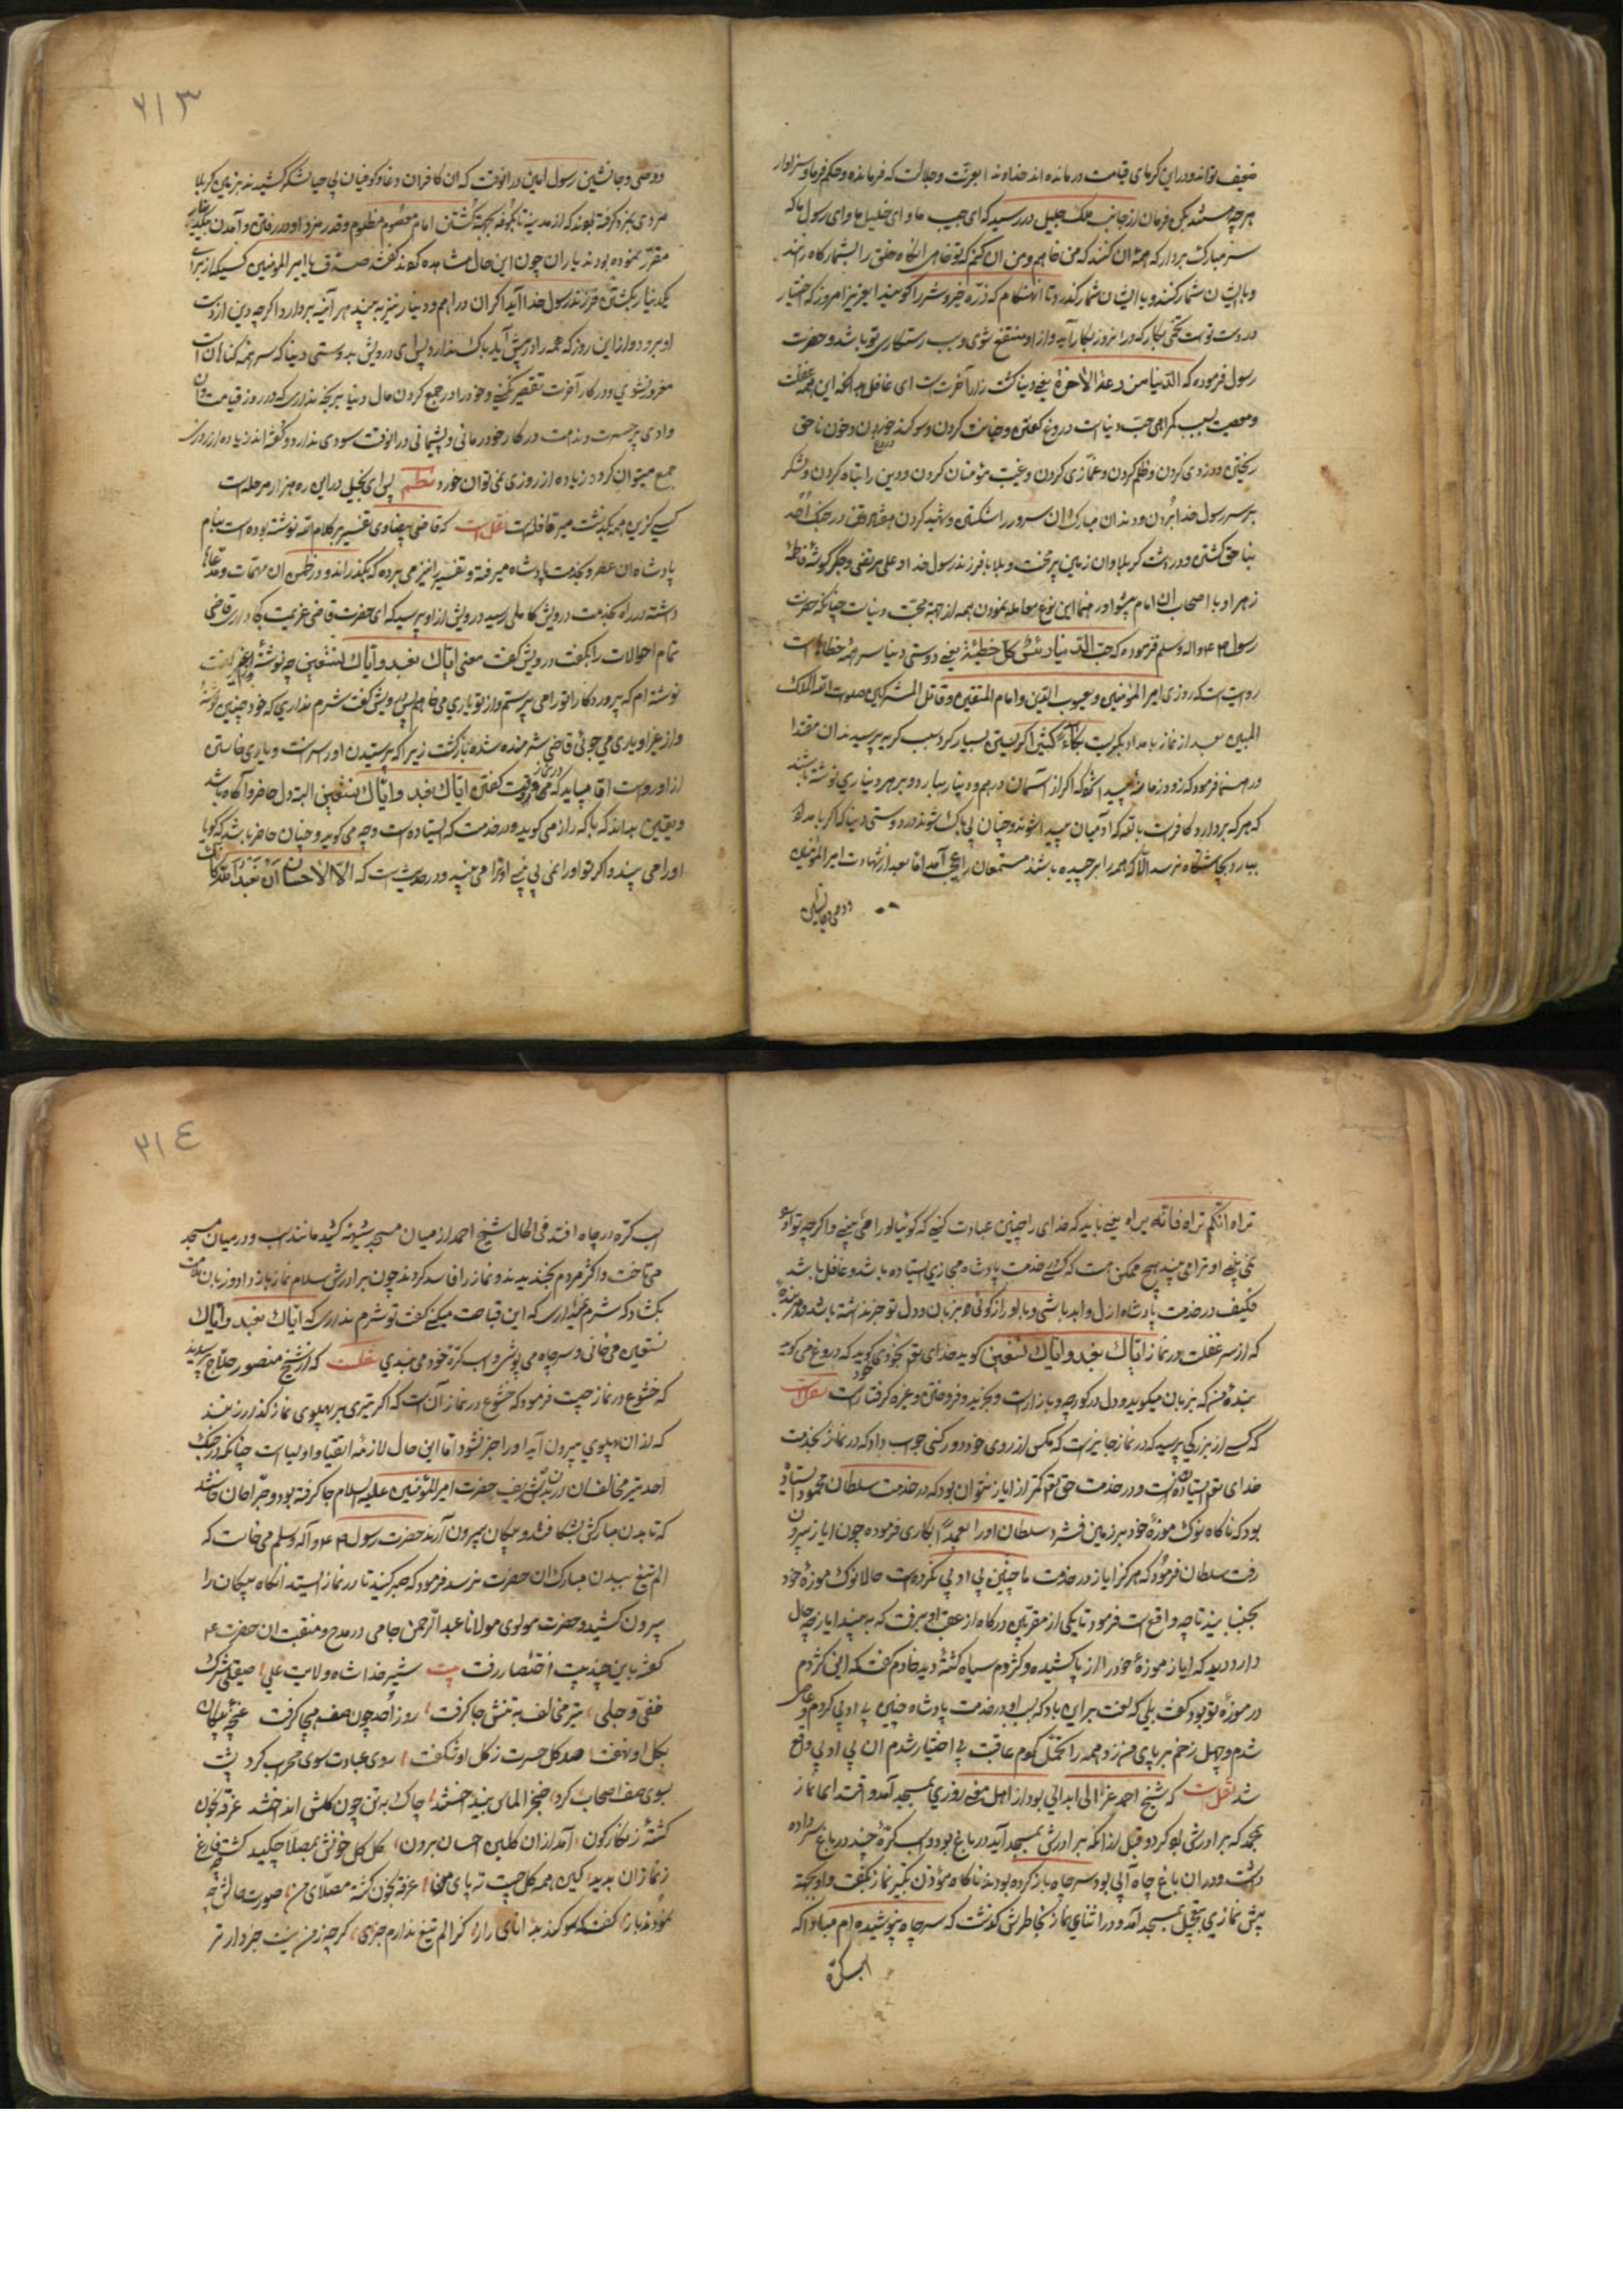 ضعیف تواند و در این گرمای قیامت درمانده اند خداوندا بعزت و جلالت که فرمانده و حکم فرما و سزاوار
هر چه هستند پس فرمان از جانب ملک جلیل در رسید که ای حبیب ما و ای خلیل ما و ای رسول ما که
سر مبارک بردار که همه آن کنند که من خواهم و من آن کنم که تو خواهی آنگاه خلق را بشمارگاه رانند
و با ایشان شمار کنند و با ایشان شمار کنند تا آن هنگام که ذره خیر و شر را گویند ای عزیز امروز که اختیار
در دست تو است تخمی بکار که در آن روز بکار آید و از او منتفع شوی و سبب رستگاری تو باشد و حضرت
رسول فرموده که الدنیا مزرعة الآخرة یعنی دنیا کشت زار آخرت است ای غافل بدانکه این همه غفلت
و معصیت بسبب گمراهی حب دنیاست دروغ گفتن و خیانت کردن و سوگند دروغ خوردن و خون ناحق
ریختن و دزدی کردن و ظلم کردن و غمازی کردن و غیبت مؤمنان کردن و دین را تباه کردن و لشکر
بر سر رسول خدا بردن و دندان مبارک آن سرور را شکستن و شهید کردن در جنگ احد
بناحق کشتن و در دشت کربلا و آن زمین پر محنت و بلا با فرزند رسول خدا و علی مرتضی و جگرگوشهٔ فاطمهٔ
زهرا و با اصحاب آن امام پیشوا و رهنما این نوع معامله نمودن همه از جهة محبت دنیاست چنانکه حضرت
رسول ص ع و اله و سلم فرموده که حب الدنیا رأس کل خطیئة یعنی دوستی دنیا سر همهٔ خطاهاست
روایتست که روزی امیر المؤمنین و یعسوب الدین و امام المتقین و قاتل المشرکین صلوات الله الملک
المبین بعد از نماز بامداد بگریست بکاءً کثیراً گریستن بسیار کرد سبب گریه پرسیدند آن مقتدا
و رهنما فرمود که زود زمانی پیدا شود که اگر از آسمان درهم و دینار ببارد و بر هر دیناری نوشته باشند
که هر که بردارد کافرست بالله که آدمیان پیدا شوند و چنان بی باک شوند در دوستی دنیا که اگر بامداد
ببارد بچاشتگاه نرسد الا که همه را برچیده باشند مستمعان را عجب آمد اما بعد از شهادت امیر المؤمنین
و وصی و جانشین
۲۱۳
و وصی و جانشین رسول امین در آن وقت که آن کافران دغا و کوفیان بی حیا لشکر کشیدند بزمین کربلا
مردی بمزد گرفته بودند که از مدینه تا بکوفه بجهة کشتن امام معصوم مظلوم و قدر مزد او در رفتن و آمدن یکدینار
مقرر نموده بودند یاران چون این حال مشاهده کردند گفتند صدق یا امیر المؤمنین کسیکه از برای
یکدینار بکشتن فرزند رسول خدا آید اگر آن دراهم و دینار نیز به بیند هر آینه بردارد اگر چه دین از دست
او برود و از این روز که همه را در پیش آید باک ندارد پس ای درویش بدوستی دنیا که سر همه گناهان است
مغرور نشوی و در کار آخرت تقصیر نکنی و خود را در جمع کردن مال دنیا برنجه نداری که در روز قیامت آن
وادی پر حسرت و ندامت در کار خود درمانی و پشیمانی در آن وقت سودی ندارد و گفته اند زیاده از روزی
جمع میتوان کرد و زیاده از روزی نمی توان خورد نظم پس ای بخیل در این ره هزار مرحله است
کسی کزین همه بگذشت میر قافله است نقلست که قاضی بیضاوی تفسیر بر کلام الله نوشته بوده است بنام
پادشاه آن عصر و بخدمت پادشاه میرفت و تفسیر را نیز می برده که بگذراند و در ضمن آن مهمات و مدعاها
داشته در راه بخدمت درویش کاملی رسید درویش از او پرسید که ای حضرت قاضی عزیمت کجا داری قاضی
تمام احوالات را بگفت درویش گفت معنی ایاک نعبد و ایاک نستعین چه نوشتهٔ گفت
نوشته ام که پروردگارا ترا می پرستم و از تو یاری می خواهم پس درویش گفت شرم نداری که خود چنین نوشتهٔ
و از غیر او یاری می جوئی قاضی شرمنده شده بازگشت زیرا که پرستیدن او را سزاست و یاری خواستن
از او رواست اما میباید که در نماز در وقت گفتن ایاک نعبد و ایاک نستعین البته دل حاضر و آگاه باشد
و یقین بداند که با که راز می گوید و در خدمت که ایستاده است و چه می گوید و چنان حاضر باشد که گویا
او را می بیند و اگر تو او را نمی بینی او ترا می بیند و در حدیث است که الا الاحسان ان تعبد الله کانک
تراه ان لم تراه فانه یراه یعنی باید که خدای را چنین عبادت کنی که گوئیا او را می بینی و اگر چه تو او را
نمی بینی او ترا می بیند هیچ ممکن هست که کسی در خدمت پادشاه مجازی ایستاده باشد و غافل باشد
فکیف در خدمت پادشاه ازل و ابد باشی و با او راز گوئی و بر زبان و دل تو جز نداشته باشد و هر بنده
که از سر غفلت در نماز ایاک نعبد و ایاک نستعین گوید خدای تعالی گوید که دروغ می گوید
بنده من که بزبان میگوید و دل در کوچه و بازار است و بخرید و فروختن و غیره گرفتار است نقلست
که کسی از بزرگی پرسید که در نماز جایزست که مگس از روی خود دور کنی جواب داد که در نماز بخدمت
خدای تعالی ایستادن است و در خدمت حق تعالی کمتر از ایاز نتوان بود که در خدمت سلطان محمود ایستاده
بود که ناگاه نوک موزهٔ خود بر زمین فشرد سلطان او را بعمداً بکاری فرموده چون ایاز بیرون
رفت سلطان فرمود که هرگز ایاز در خدمت ما چنین بی ادبی نکرده است حالا نوک موزهٔ خود
بجنبانید تا چه واقع است فرمود تا یکی از مقربین درگاه از عقب او برفت که به بیند ایاز چه حال
دارد دید که ایاز موزهٔ خود را از پا کشیده و کژدم سیاه کشتهٔ دید خادم گفت که این کژدم
در موزهٔ تو بود گفت بلی که لعنت بر این باد که بسبب او در خدمت پادشاه چنین بی ادبی کردم و عاصی
شدم و چهل زخم بر پای من زد و همه را تحمل کردم عاقبت بی اختیار شدم آن بی ادبی واقع
شد نقلست که شیخ احمد غزالی ابدالی بود از اهل معنی روزی بمسجد آمد و اقتدا نماز
بمحمد که برادرش بود کرد و قبل از آنکه برادرش بمسجد آید در باغ بود و اسب کرهٔ چند در باغ سر داده
داشت و در آن باغ چاه آبی بود سر چاه باز کرده بودند ناگاه مؤذن تکبیر نماز بگفت و او بجهة
پیش نمازی بتعجیل بمسجد آمد و در اثنای نماز بخاطرش گذشت که سر چاه نپوشیده ام مبادا که
اسب کره
۲۱٤
اسب کره در چاه افتد فی الحال شیخ احمد از میان مسجد شیهه کشید مانند اسب و در میان مسجد
می تاخت و اکثر مردم بخندیدند و نماز را فاسد کردند چون برادرش سلام نماز باز داد و زبان ملامت
بگشاد که شرم نمیداری که این قباحت میکنی گفت تو شرم نداری که ایاک نعبد و ایاک
نستعین می خوانی و سر چاه می پوشی و اسب کرهٔ خود می بندی نقلست که از شیخ منصور حلاج پرسیدند
که خشوع در نماز چیست فرمود که خشوع در نماز آن است که اگر تیری بر پهلوی نمازگذار زنند
که از آن پهلوی بیرون آید او را خبر نشود اما این حال لازمهٔ اتقیا و اولیاست چنانکه در جنگ
احد تیر مخالفان در بدن شریف حضرت امیر المؤمنین علیه السلام جا گرفته بود و جراحان خواستند
که تا بدن مبارکش بشکافند و پیکان بیرون آرند حضرت رسول ص ع و آله و سلم می خواست که
الم تیغ ببدن مبارک آن حضرت نرسد فرمود که صبر کنید تا در نماز ایستد آنگاه پیکان را
بیرون کشید و حضرت مولوی مولانا عبد الرحمن جامی در مدح و منقبت آن حضرت ع
گفته باین چند بیت اختصار رفت بیت شیر خدا شاه ولایت علی صیقلی شرک
خفی و جلی تیر مخالف به تنش جا گرفت روز احد چون صف هیجا گرفت غنچهٔ پیکان
بگل او نهفت صد گل حسرت ز گل او شکفت روی عبادت سوی محراب کرد پشت
بسوی صف اصحاب کرد خنجر الماس بیند اختند چاک به تن چون گلش انداختند غرقه بخون
کشتهٔ زنگارگون آمد از آن گلبن احسان برون گل گل خونش بمصلا چکید گشت چو فارغ
ز نماز آن بدید کین همه گل چیست ته پای من غرقه بخون گشته مصلای من صورت حالش چه
نمودند باز گفت که سوگند به دانای راز کز الم تیغ ندارم خبر گر چه ز من نیست خبردارتر